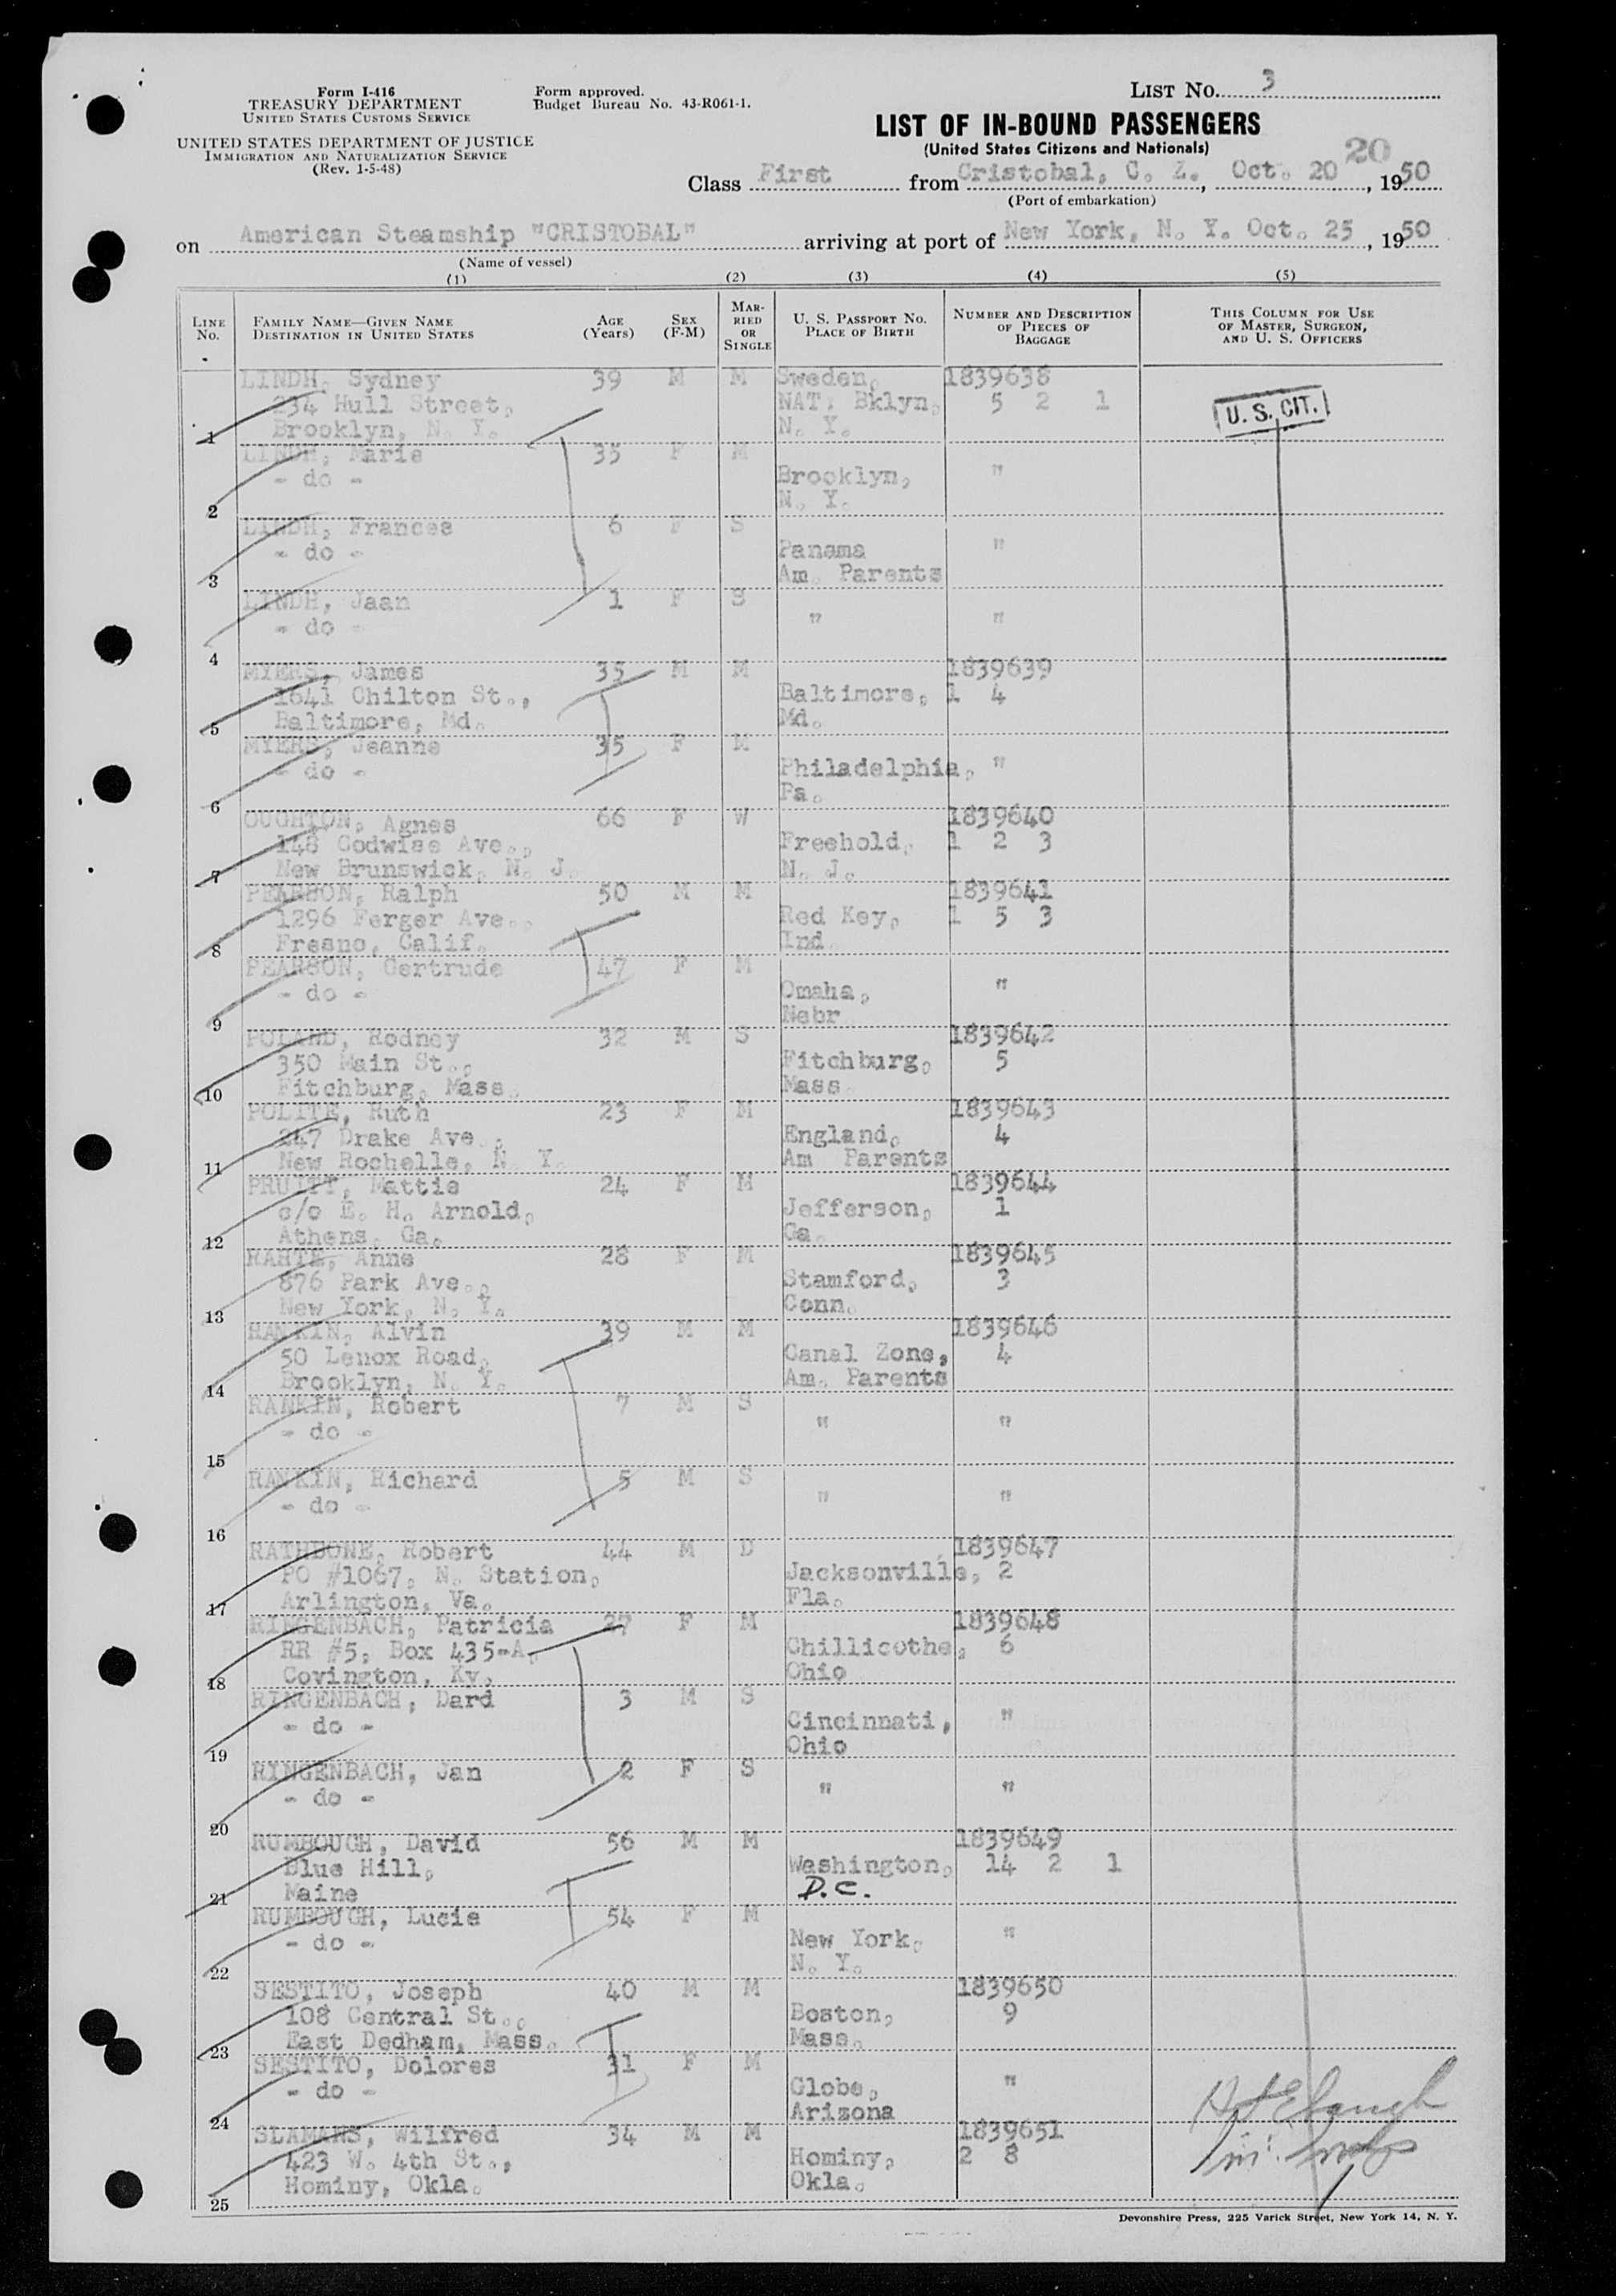 Form I-416
TREASURY DEPARTMENT
UNITED STATES CUSTOMS SERVICE
UNITED STATES DEPARTMENT OF JUSTICE
IMMIGRATION AND NATURALIZATION SERVICE
(Rev. 1-5-48)
Form approved.
Budget Bureau No. 43-R061-1.
LIST No. 3
LIST OF IN-BOUND PASSENGERS
(United States Citizens and Nationals)
20
Class First from Cristobal, C. Z., Oct. 20, 1950
(Port of embarkation)
on American Steamship "CRISTOBAL" arriving at port of New York, N. Y. Oct. 25, 1950
(Name of vessel)
(1) (2) (3) (4) (5)
LINE No. FAMILY NAME—GIVEN NAME DESTINATION IN UNITED STATES AGE (Years) SEX (F-M) MARRIED OR SINGLE U. S. PASSPORT No. PLACE OF BIRTH NUMBER AND DESCRIPTION OF PIECES OF BAGGAGE THIS COLUMN FOR USE OF MASTER, SURGEON, AND U. S. OFFICERS
LINDH, Sydney 39 M M Sweden, 1839638
234 Hull Street, NAT: Bklyn, 5 2 1 U. S. CIT.
1 Brooklyn, N. Y. N. Y.
LINDH, Marie 35 F M
- do - Brooklyn, "
2 N. Y.
LINDH, Frances 6 F S
- do - Panama "
3 Am. Parents
LINDH, Jaan 1 F S
- do - " "
4
MYERS, James 35 M M 1839639
1641 Chilton St., Baltimore, 1 4
5 Baltimore, Md. Md.
MYERS, Jeanne 35 F M
- do - Philadelphia, "
6 Pa.
OUGHTON, Agnes 66 F W 1839640
148 Godwise Ave., Freehold, 1 2 3
7 New Brunswick, N. J. N. J.
PEARSON, Ralph 50 M M 1839641
1296 Ferger Ave., Red Key, 1 5 3
8 Fresno, Calif. Ind.
PEARSON, Gertrude 47 F M
- do - Omaha, "
9 Nebr.
POLAND, Rodney 32 M S 1839642
350 Main St., Fitchburg, 5
10 Fitchburg, Mass. Mass.
POLITE, Ruth 23 F M 1839643
247 Drake Ave., England, 4
11 New Rochelle, N. Y. Am Parents
PRUITT, Mattie 24 F M 1839644
c/o E. H. Arnold, Jefferson, 1
12 Athens, Ga. Ga.
RAHTE, Anne 28 F M 1839645
876 Park Ave., Stamford, 3
13 New York, N. Y. Conn.
RANKIN, Alvin 39 M M 1839646
50 Lenox Road, Canal Zone, 4
14 Brooklyn, N. Y. Am. Parents
RANKIN, Robert 7 M S
- do - " "
15
RANKIN, Richard 5 M S
- do - " "
16
RATHBONE, Robert 44 M D 1839647
PO #1067, N. Station, Jacksonville, 2
17 Arlington, Va. Fla.
RINGENBACH, Patricia 27 F M 1839648
RR #5, Box 435-A, Chillicothe, 6
18 Covington, Ky. Ohio
RINGENBACH, Dard 3 M S
- do - Cincinnati, "
19 Ohio
RINGENBACH, Jan 2 F S
- do - " "
20
RUMBOUGH, David 56 M M 1839649
Blue Hill, Washington, 14 2 1
21 Maine D.C.
RUMBOUGH, Lucie 54 F M
- do - New York, "
22 N. Y.
SESTITO, Joseph 40 M M 1839650
108 Central St., Boston, 9
23 East Dedham, Mass. Mass.
SESTITO, Dolores 31 F M
- do - Globe, "
24 Arizona
SLAMANS, Wilfred 34 M M 1839651
423 W. 4th St., Hominy, 2 8
25 Hominy, Okla. Okla.
Devonshire Press, 225 Varick Street, New York 14, N. Y.